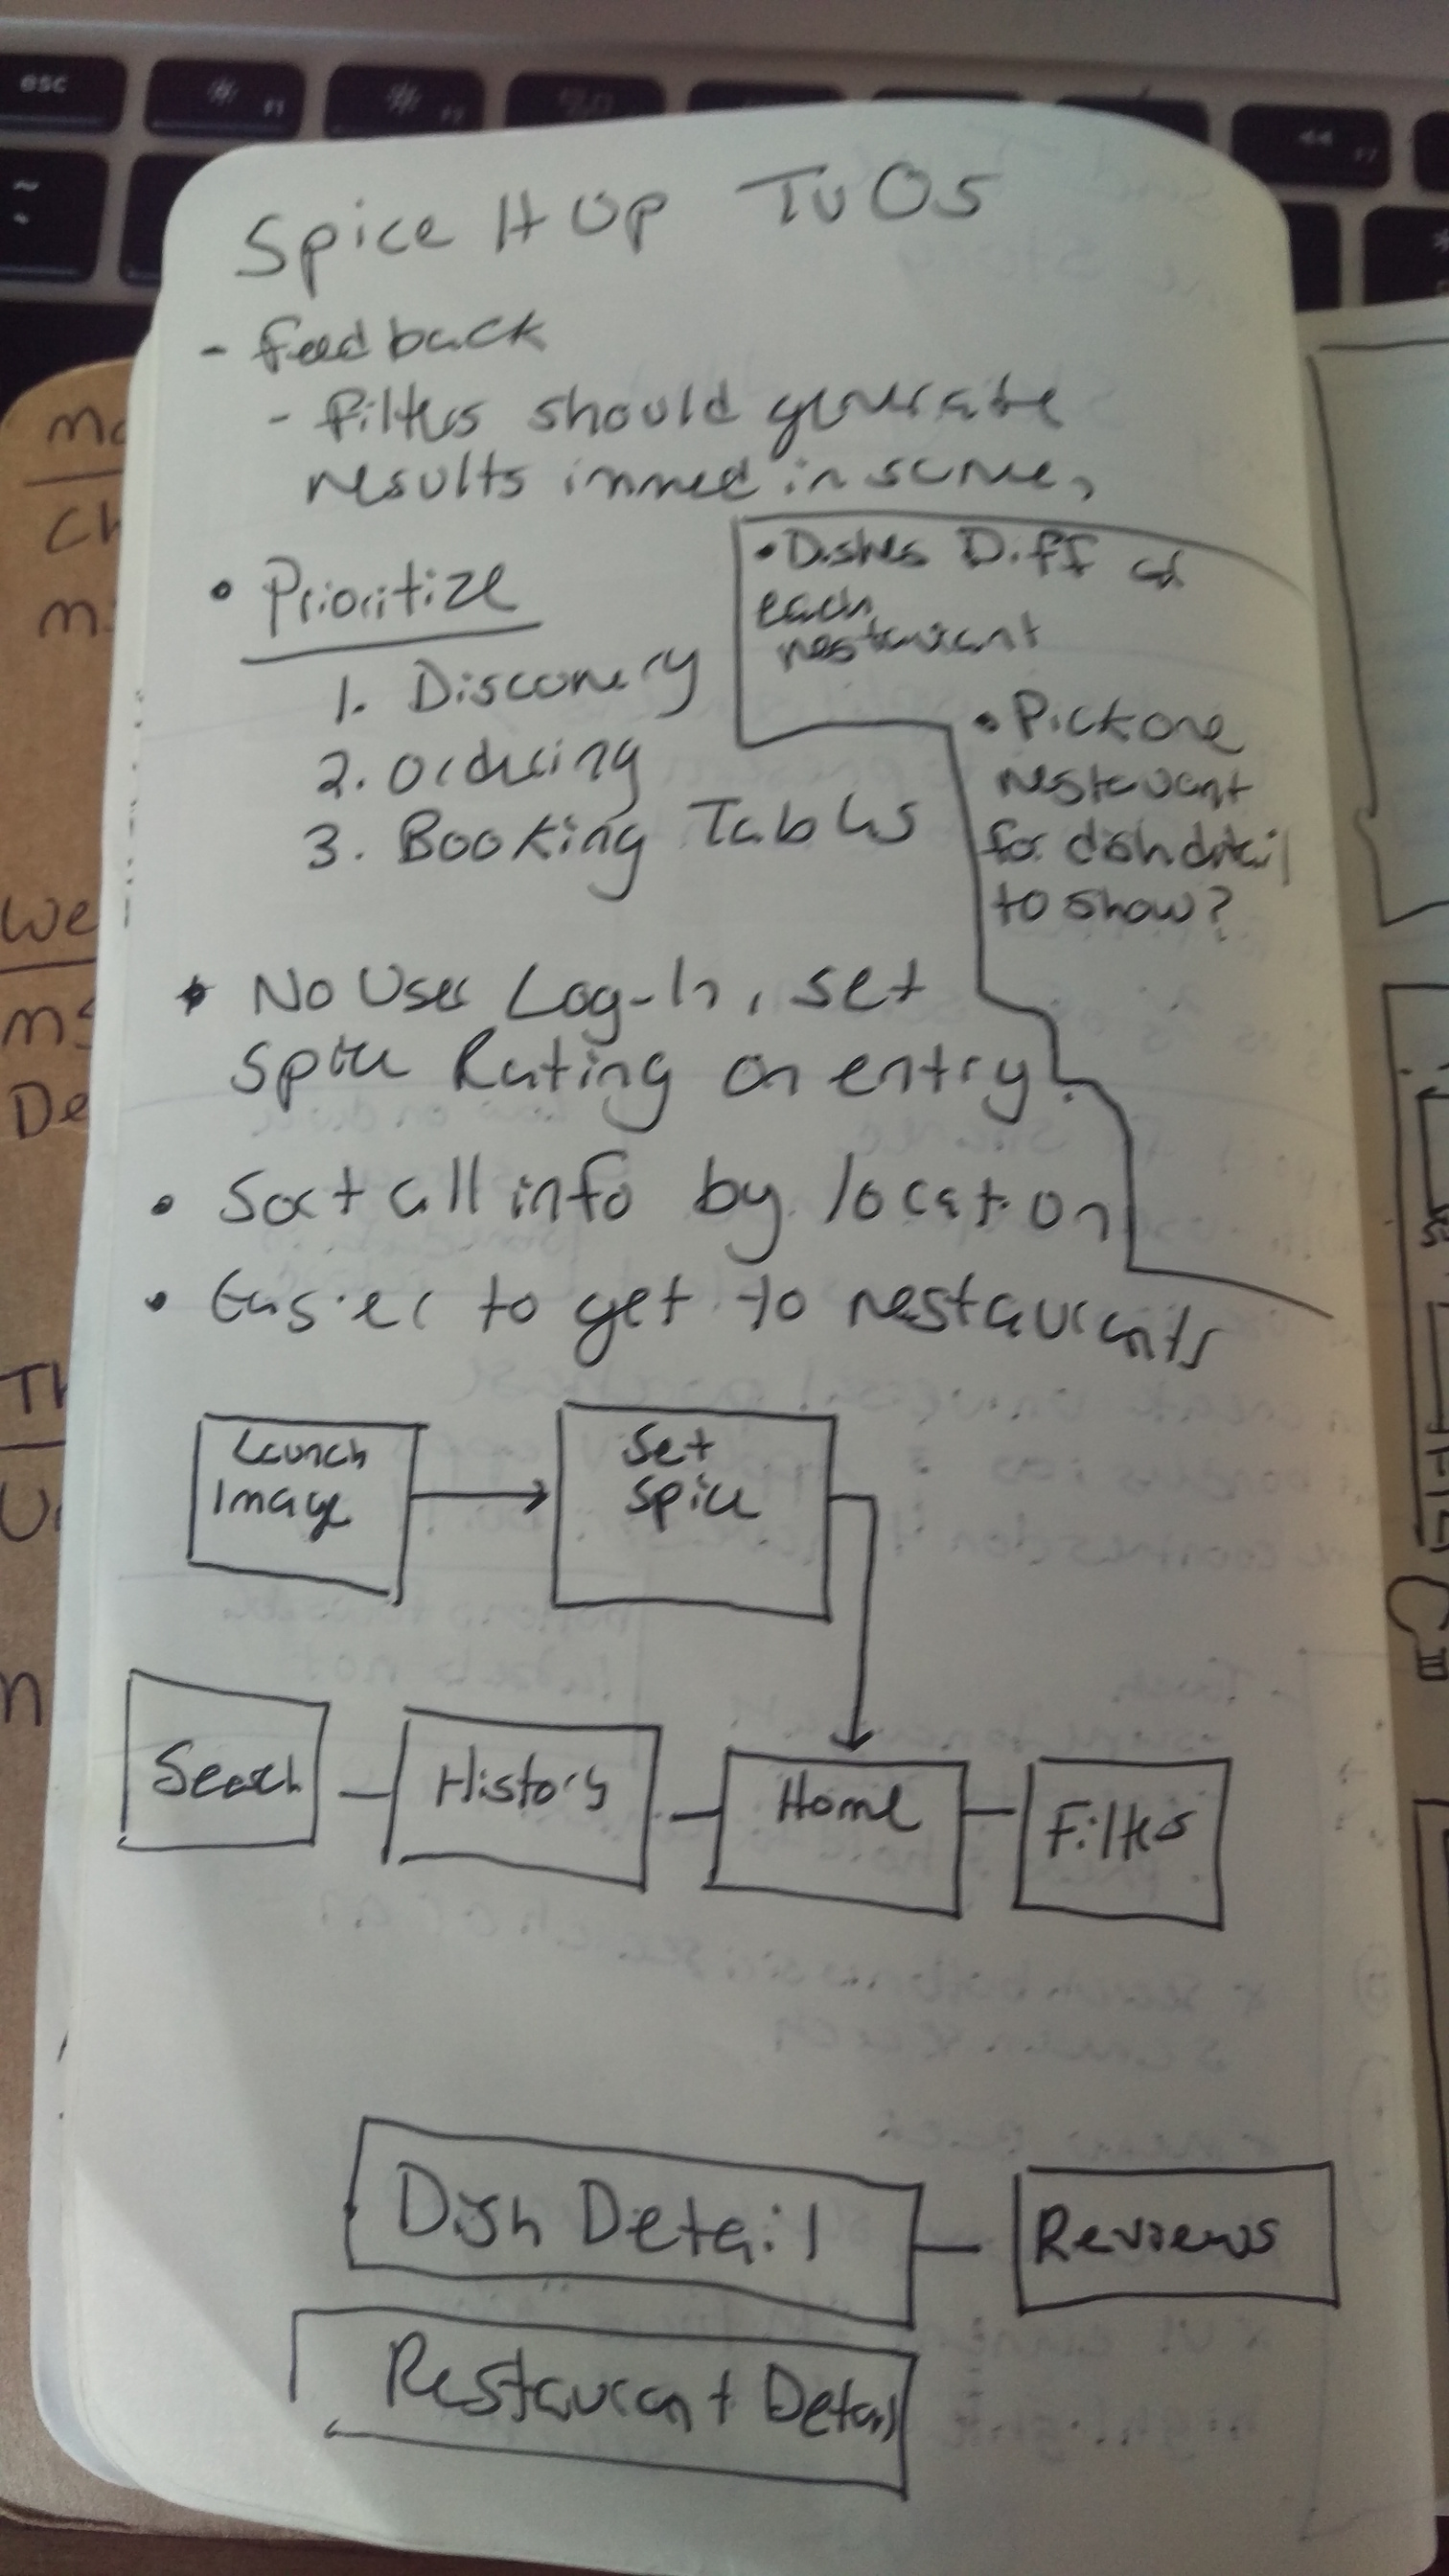 Spice It Up TvOS
- feedback
- filters should generate
results immed in scene,
• Prioritize
1. Discovery
2. Ordering
3. Booking Tables
• Dishes Diff at
each
restaurant
• Pick one
restaurant
for dish detail
to show?
• No User Log-In, set
Spice Rating on entry.
• Sort all info by location
• Easier to get to restaurants
Launch
Image
Set
Spice
Search
History
Home
Filters
Dish Detail
Reviews
Restaurant Detail
esc
F1
F2
F7
We
De